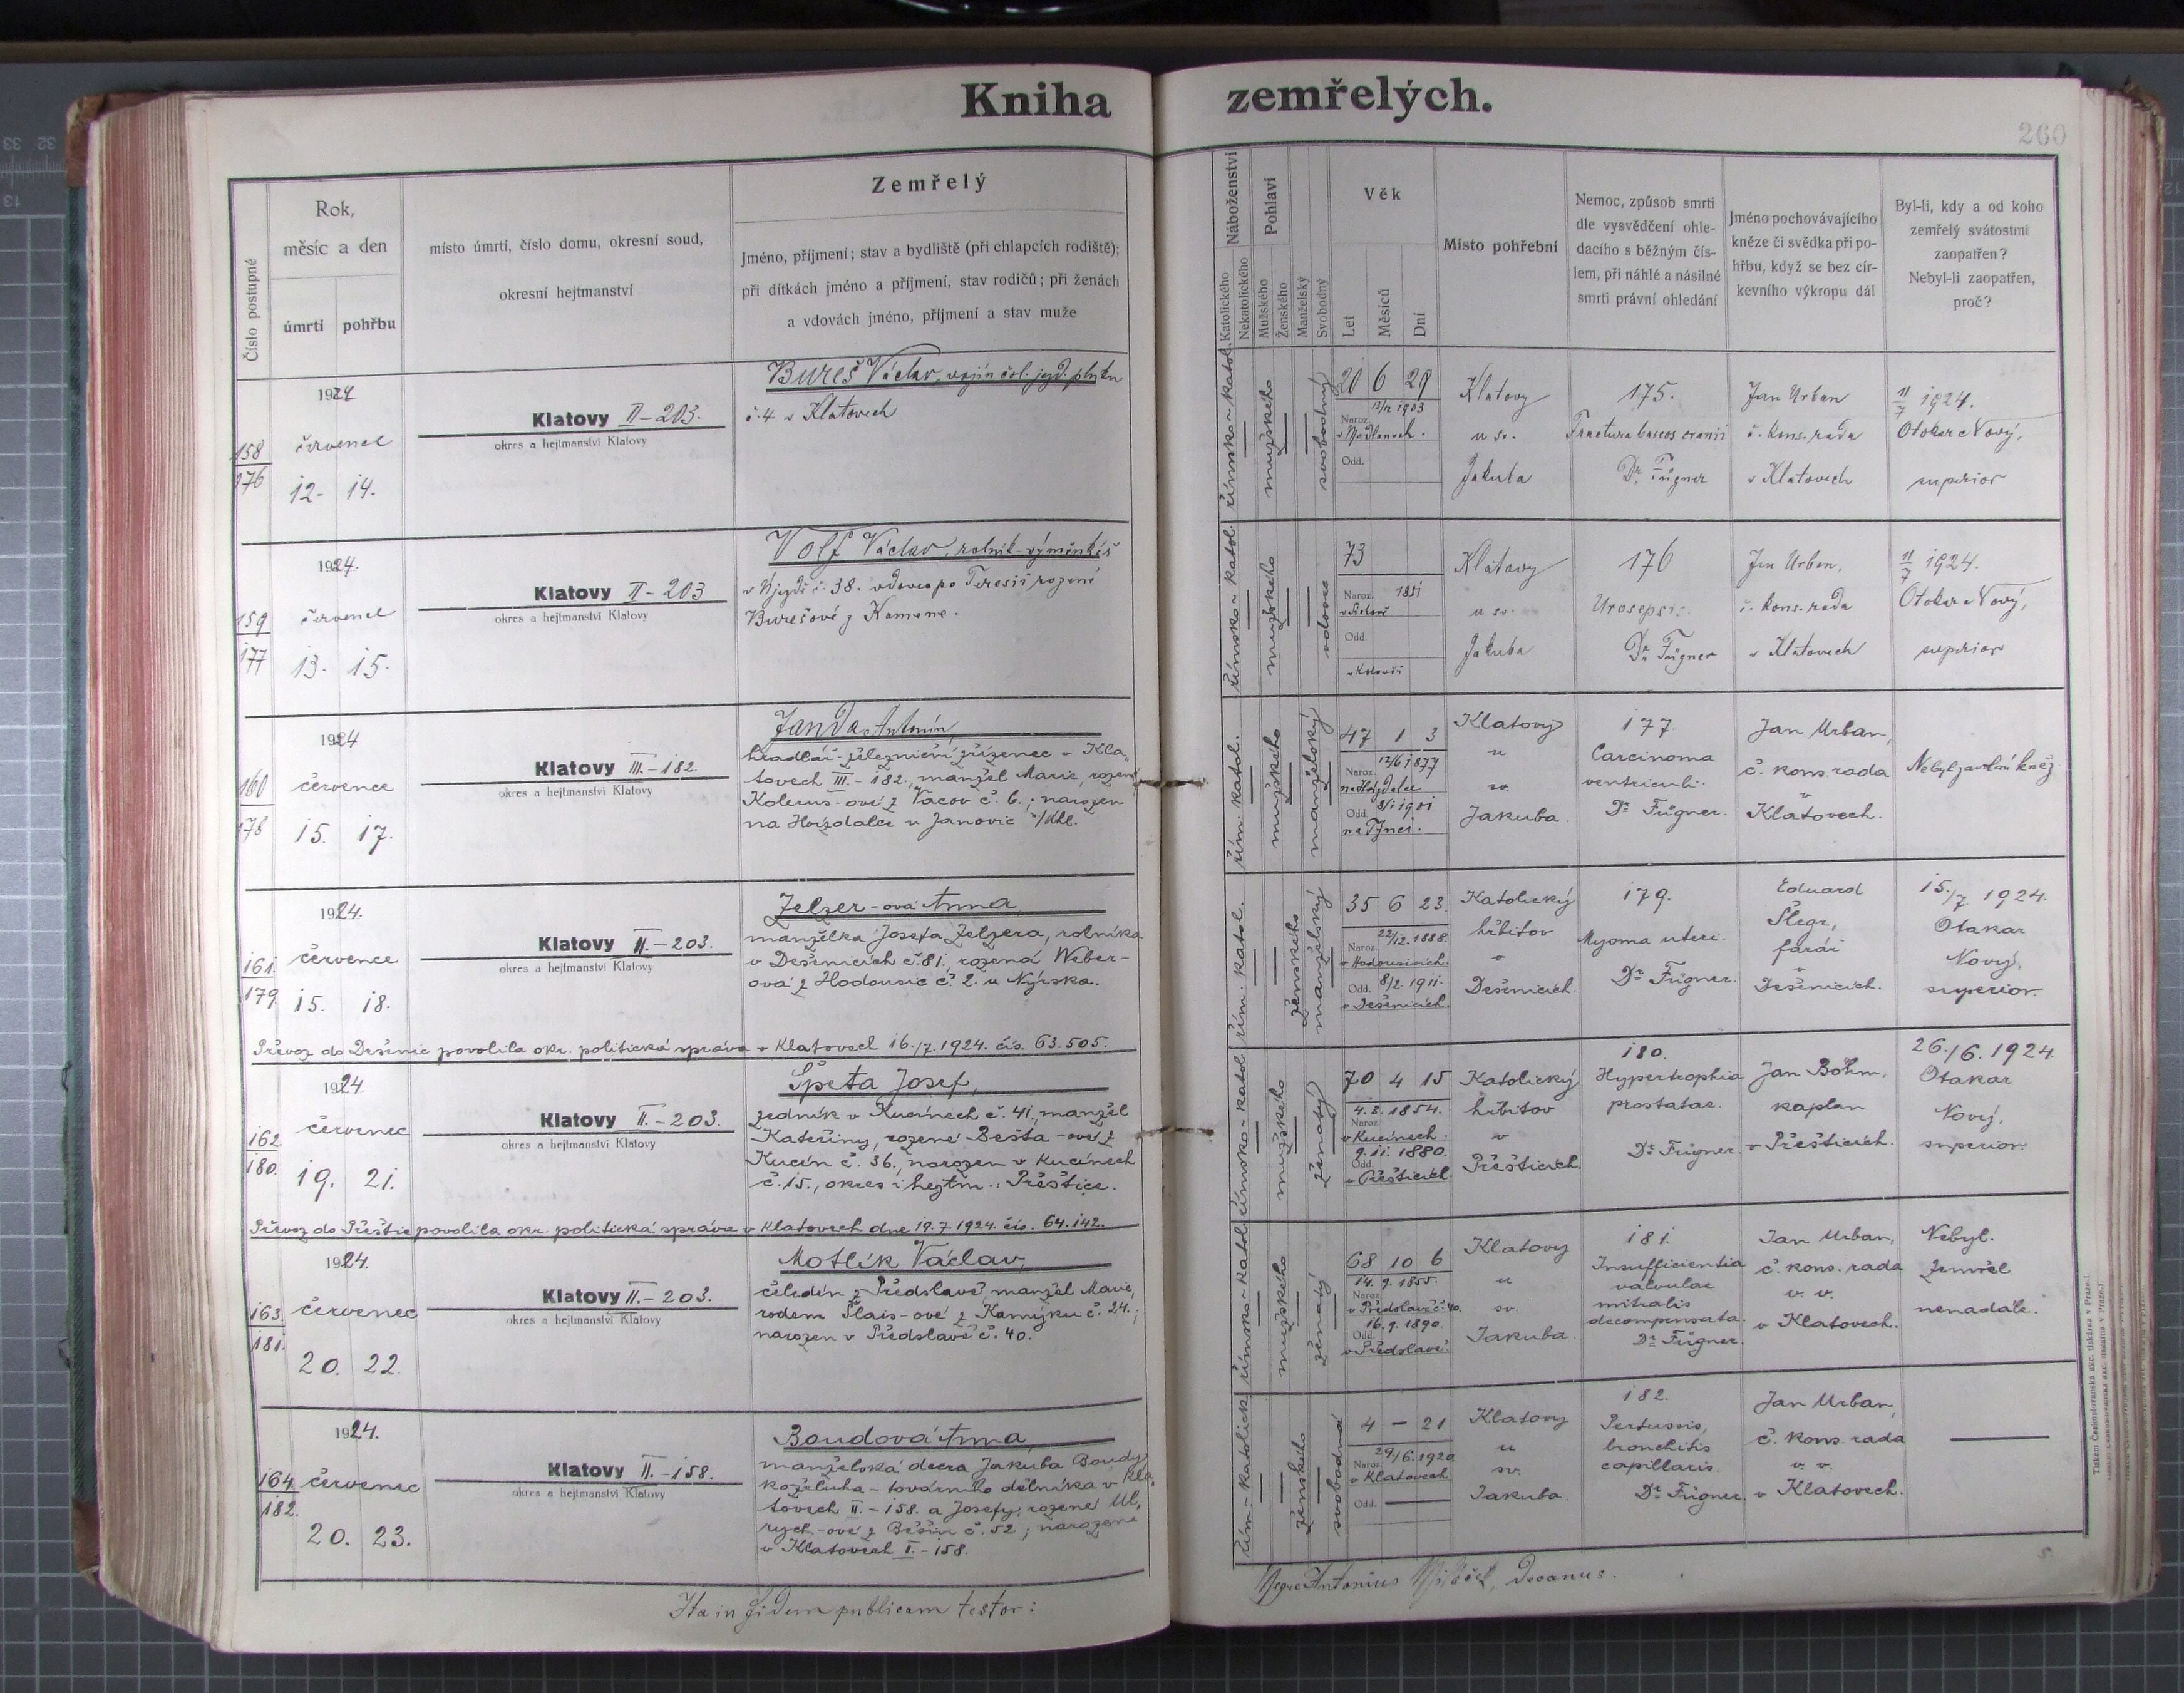 Kniha zemřelých.
260
Číslo postupné
Rok,
měsíc a den
úmrtí
pohřbu
místo úmrtí, číslo domu, okresní soud,
okresní hejtmanství
Zemřelý
Jméno, příjmení; stav a bydliště (při chlapcích rodiště);
při dítkách jméno a příjmení, stav rodičů; při ženách
a vdovách jméno, příjmení a stav muže
Náboženství
Katolického
Nekatolického
Pohlaví
Mužského
Ženského
Manželský
Svobodný
Věk
Let
Měsíců
Dní
Místo pohřební
Nemoc, způsob smrti
dle vysvědčení ohle-
dacího s běžným čís-
lem, při náhlé a násilné
smrti právní ohledání
Jméno pochovávajícího
kněze či svědka při po-
hřbu, když se bez cír-
kevního výkropu dál
Byl-li, kdy a od koho
zemřelý svátostmi
zaopatřen?
Nebyl-li zaopatřen,
proč?
158
176
1924
červenec
12. 14.
Klatovy II-203.
okres a hejtmanství Klatovy
Bureš Václav, vojín čsl. jezd. pluku
č. 4 v Klatovech
římsko-katol.
mužského
svobodný
20 6 29
13/12 1903
Naroz.
Odd.
Klatovy
u sv.
Jakuba
175.
Fractura baseos cranii
Dr. Fügner
Jan Urban
č. kons. rada
v Klatovech
11/7 1924.
Otokar Nový,
superior
159
177
1924.
červenec
13. 15.
Klatovy II-203
okres a hejtmanství Klatovy
Volf Václav, rolník-výměnkář
v Újezdě č. 38. vdovec po Teresii rozené
Burešové z Kamene.
římsko-katol.
mužského
vdovec
73
Naroz. 1851
Odd.
Klatovy
u sv.
Jakuba
176
Urosepsis.
Dr. Fügner
Jan Urban,
č. kons. rada
v Klatovech
11/7 1924.
Otokar Nový,
superior
160
178
1924
července
15. 17.
Klatovy III.-182.
okres a hejtmanství Klatovy
Janda Antonín,
hradlař-železniční zřízenec v Kla-
tovech III.-182., manžel Marie, rozen
Kolerus-ové z Vacov č. 6.; narozen
na Hvízdalce u Janovic n/Úhl.
řím. katol.
mužského
manželský
47 1 3
12/6 1877
Naroz.
na Hvízdalce
8/1 1901
Odd.
na Týnci.
Klatovy
u
sv.
Jakuba.
177.
Carcinoma
ventriculi.
Dr. Fügner.
Jan Urban,
č. kons. rada
v
Klatovech.
Nebyl zavolán kněz.
161.
179.
1924.
července
15. 18.
Klatovy II.-203.
okres a hejtmanství Klatovy
Zelzer-ová Anna,
manželka Josefa Zelzera, rolníka
v Dešenicích č. 81, rozená Weber-
ová z Hodousic č. 2. u Nýrska.
řím. katol.
ženského
manželský
35 6 23.
22/12. 1888.
Naroz.
v Hodousicích.
Odd. 8/2. 1911.
v Dešenicích.
Katolický
hřbitov
v
Dešenicích.
179.
Myoma uteri.
Dr. Fügner.
Eduard
Šlegr,
farář
v
Dešenicích.
15./7 1924.
Otakar
Nový,
superior.
Převoz do Dešenic povolila okr. politická správa v Klatovech 16./7 1924. čís. 63.505.
162.
180.
1924.
červenec
19. 21.
Klatovy II.-203.
okres a hejtmanství Klatovy
Špeta Josef,
zedník v Kucínech č. 41, manžel
Kateřiny, rozené Bešta-ové z
Kucín č. 36., narozen v Kucínech
č. 15., okres i hejtm.: Přeštice.
římsko-katol
mužského
ženatý
70 4 15
4.3. 1854.
Naroz.
v Kucínech.
9.11. 1880.
Odd.
v Přešticích.
Katolický
hřbitov
v
Přešticích.
180.
Hypertrophia
prostatae.
Dr. Fügner.
Jan Böhm,
kaplan
v Přešticích.
26./6. 1924.
Otakar
Nový,
superior.
Převoz do Přeštic povolila okr. politická správa v Klatovech dne 19.7.1924. čís. 64.142.
163.
181.
1924.
červenec
20. 22.
Klatovy II.-203.
okres a hejtmanství Klatovy
Motlík Václav,
čeledín z Předslavě, manžel Marie,
rodem Šlais-ové z Kamýku č. 24.;
narozen v Předslavě č. 40.
římsko-katol
mužského
ženatý
68 10 6
14. 9. 1855.
Naroz.
v Předslavi č. 40.
16. 9. 1890.
Odd.
v Předslavi.
Klatovy
u
sv.
Jakuba.
181.
Insufficientia
valvulae
mitralis
decompensata.
Dr. Fügner.
Jan Urban,
č. kons. rada
v. v.
v Klatovech.
Nebyl.
Zemřel
nenadále.
164.
182.
1924.
červenec
20. 23.
Klatovy II.-158.
okres a hejtmanství Klatovy
Boudová Anna,
manželská dcera Jakuba Boudy,
koželuha-továrního dělníka v Kla-
tovech II.-158. a Josefy, rozené Ul-
rych-ové z Běšin č. 52.; narozené
v Klatovech I.-158.
řím-katolick.
ženského
svobodná
4 — 21
29/6.1920
Naroz.
v Klatovech.
Odd.
Klatovy
u
sv.
Jakuba.
182.
Pertussis,
bronchitis
capillaris.
Dr. Fügner.
Jan Urban,
č. kons. rada
v. v.
v Klatovech.
Ita in fidem publicam testor:
Antonius decanus.
Tiskem Českoslovanská akc. tiskárna v Praze-I.